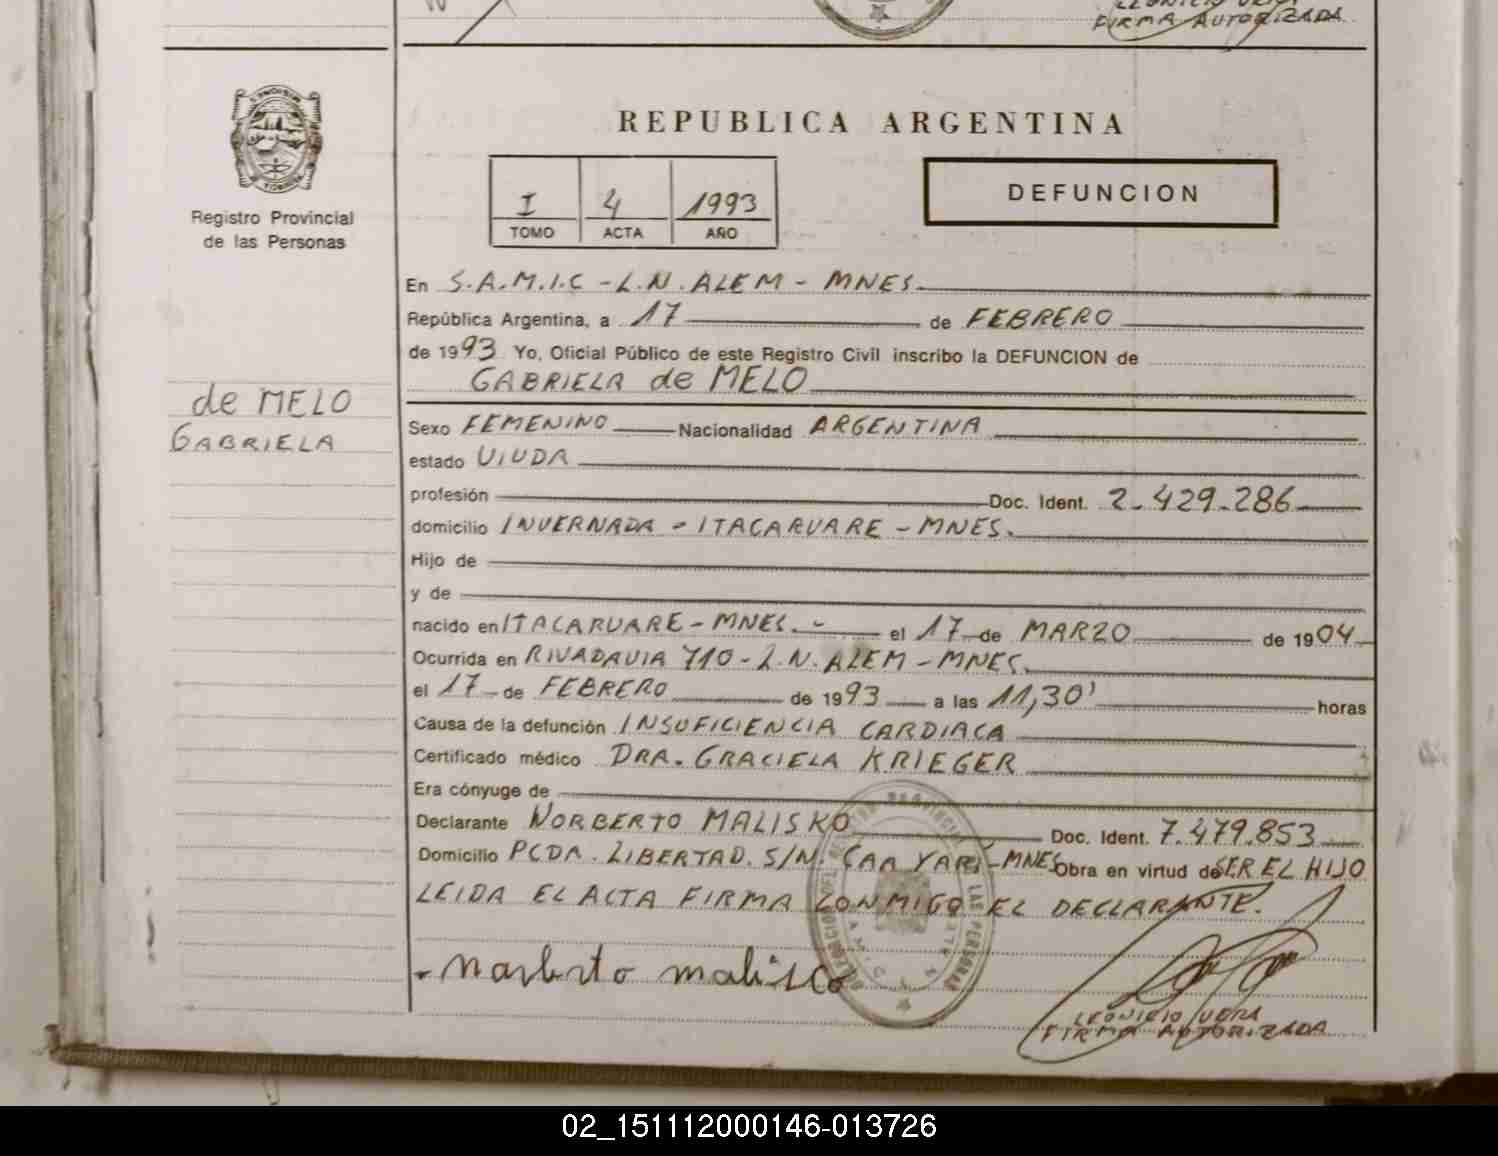 FIRMA AUTORIZADA
REPUBLICA ARGENTINA
Registro Provincial
de las Personas
I 4 1993
TOMO ACTA AÑO
DEFUNCION
En S.A.M.I.C - L.N. ALEM - MNES.
República Argentina, a 17 de FEBRERO
de 1993 Yo, Oficial Público de este Registro Civil inscribo la DEFUNCION de
GABRIELA de MELO
de MELO
GABRIELA
Sexo FEMENINO Nacionalidad ARGENTINA
estado VIUDA
profesión Doc. Ident. 2.429.286
domicilio INVERNADA - ITACARUARE - MNES.
Hijo de
y de
nacido en ITACARUARE - MNES. - el 17 de MARZO de 1904
Ocurrida en RIVADAVIA 710 - L.N. ALEM - MNES.
el 17 de FEBRERO de 1993 a las 11,30' horas
Causa de la defunción INSUFICIENCIA CARDIACA
Certificado médico DRA. GRACIELA KRIEGER
Era cónyuge de
Declarante NORBERTO MALISKO Doc. Ident. 7.479.853
Domicilio PCDA. LIBERTAD. S/N. CAA YARÍ - MNES Obra en virtud de SER EL HIJO
LEIDA EL ACTA FIRMA CONMIGO EL DECLARANTE.
Norberto malisco
LEONICIO VERA
FIRMA AUTORIZADA
02_151112000146-013726